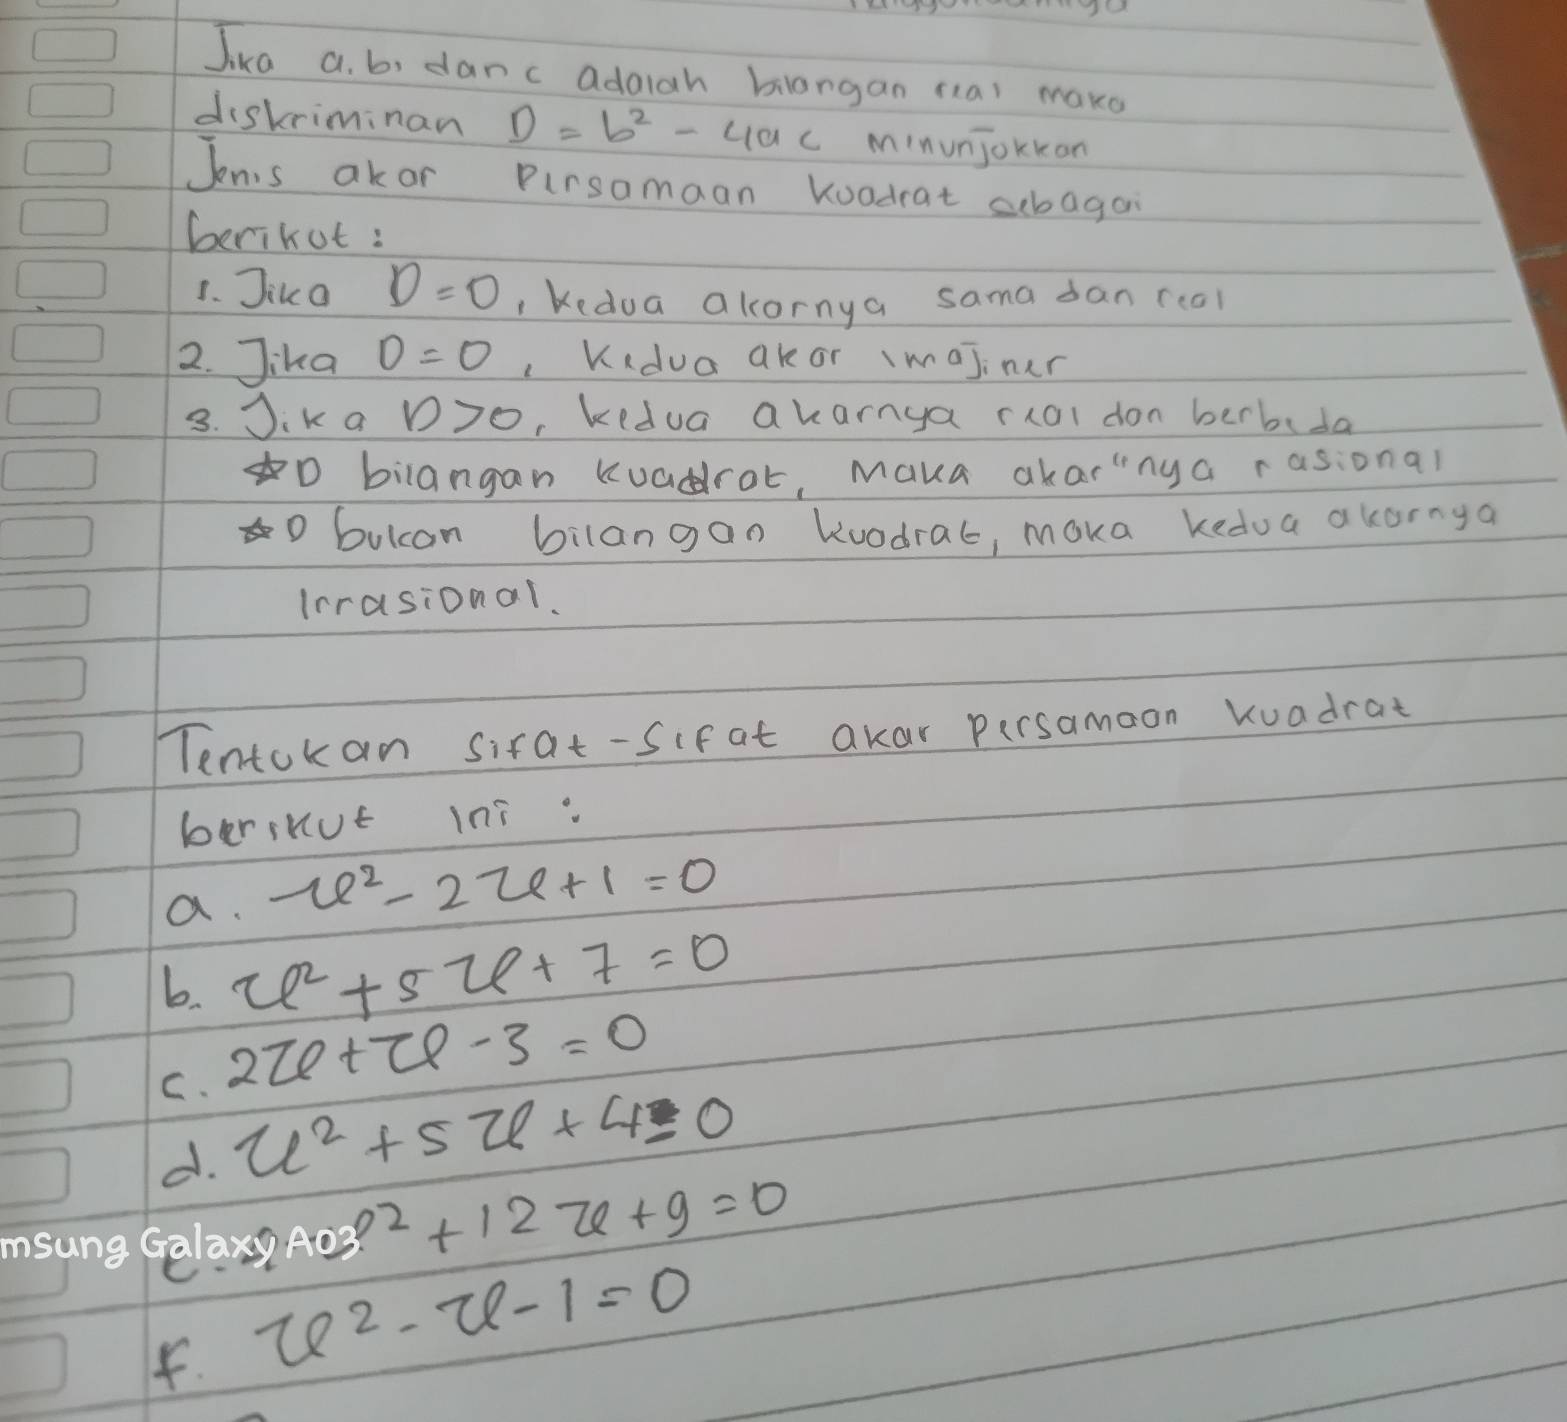 Jika a.b, dan c adalah bilangan real maka
diskriminan D = b² - 4ac menunjukkan
Jenis akar persamaan kuadrat sebagai
berikut :
1. Jika D = 0, kedua akarnya sama dan real
2. Jika D = 0, kedua akar imajiner
3. Jika D > 0, kedua akarnya real dan berbeda
☆ D bilangan kuadrat, maka akar"nya rasional
☆ D bukan bilangan kuadrat, maka kedua akarnya
Irrasional.
Tentukan sifat-sifat akar persamaan kuadrat
berikut ini :
a. x² - 2x + 1 = 0
b. x² + 5x + 7 = 0
c. 2x + x - 3 = 0
d. x² + 5x + 4 = 0
x² + 12x + 9 = 0
msung Galaxy A03
f. x² - x - 1 = 0